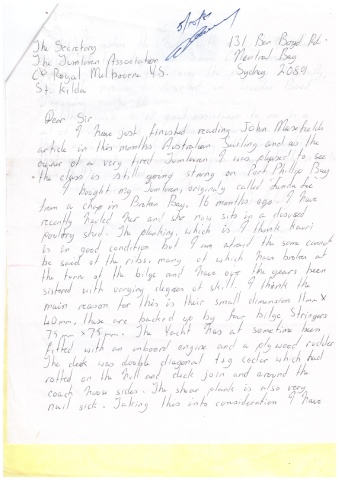 5/10/81
The Secretary
131 Ben Boyd Rd.
The Jumlaren Association
Neutral Bay
C/o Royal Melbourne Y.S.
Sydney 2089
St. Kilda
Dear Sir
I have just finished reading John Masefields
article in this months Australian Sailing and as the
owner of a very tired Jumlaren I was pleased to see
the class is still going strong on Port Phillip Bay
I bought my Jumlaren, originaly called
from a chap in Broken Bay, 16 months ago. I have
recently hauled her and she now sits in a disused
poultry shed. The planking, which is I think kauri
is in good condition but I am afraid the same cannot
be said of the ribs, many of which have broken at
the turn of the bilge and have over the years been
sistered with varying degrees of skill. I think the
main reason for this is their small dimension 11mm x
40mm, these are backed up by four bilge stringers
75mm x 75mm. The Yacht has at sometime been
fitted with an inboard engine and a plywood rudder
The deck was double diagonal t&g cedar which had
rotted on the hull and deck join and around the
coach house sides. The shear plank is also very
nail sick. Taking this into consideration I have